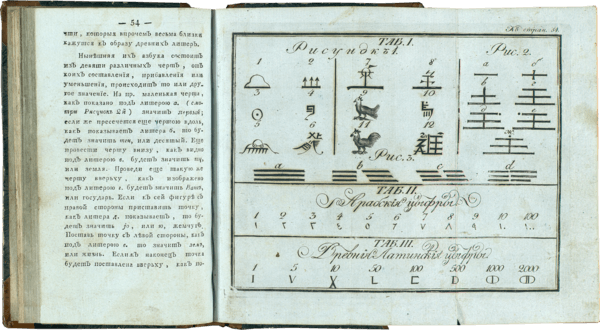 — 54 —
чти, которыя впрочемъ весьма близки
кажутся къ образу древнихъ литеръ.
Нынѣшняя ихъ азбука состоитъ
изъ девяти различныхъ чертъ, отъ
коихъ составленія, прибавленія или
уменьшенія, происходитъ то или дру-
гое значеніе. На пр. маленькая черта,
какъ показано подъ литерою а. (смо-
три Рисунокъ 2й) значитъ первый;
если же пресечется еще чертою вдоль,
какъ показываетъ литера б, то бу-
детъ значить или десятый. Еще
провести черту внизу, какъ видно
подъ литерою в. будетъ значить
или земля. Проведи еще такую же
черту вверьху, какъ изображено
подъ литерою г. будетъ значить
или государь. Если къ сей фигурѣ съ
правой стороны приставишь точку,
какъ литера д. показываетъ, то бу-
детъ значить или ю, жемчугъ.
Поставь точку съ лѣвой стороны, какъ
подъ литерою е. то значить
или жизнь. наконецъ точка
будетъ поставлена вверьху, какъ по-
Къ стран. 54.
ТАБ. I.
Рисунокъ 1.
Рис. 2.
1 2 7 8
3 4 9 10
5 6 11 12
а б
Рис. 3.
a b c d
ТАБ. II.
Арабскія цыфры.
1 2 3 4 5 6 7 8 9 10 100
١ ٢ ٣ ٤ ٥ ٦ ٧ ٨ ٩ ١٠ ١٠٠
ТАБ. III.
Древнія Латинскія Цыфры.
1 5 10 50 100 500 1000 2000
I V X L C D